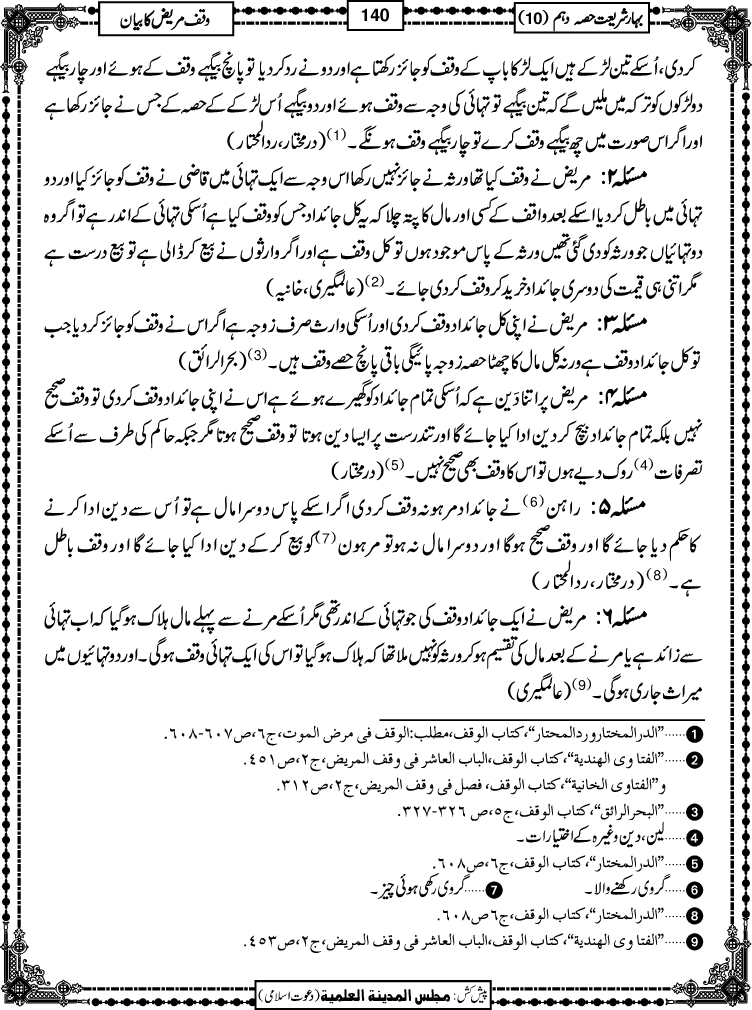 بہار شریعت حصہ دہم (10)
140
وقف مریض کا بیان
کردی، اُسکے تین لڑکے ہیں ایک لڑکا باپ کے وقف کو جائز رکھتا ہے اور دو نے رد کردیا تو پانچ بیگہے وقف کے ہوئے اور چار بیگہے
دولڑکوں کو ترکہ میں ملیں گے کہ تین بیگہے تو تہائی کی وجہ سے وقف ہوئے اور دو بیگہے اُس لڑکے کے حصہ کے جس نے جائز رکھا ہے
اور اگر اس صورت میں چھ بیگہے وقف کرے تو چار بیگہے وقف ہونگے۔(1) (درمختار، ردالمحتار)
مسئلہ ۲: مریض نے وقف کیا تھا ورثہ نے جائز نہیں رکھا اس وجہ سے ایک تہائی میں قاضی نے وقف کو جائز کیا اور دو
تہائی میں باطل کردیا اسکے بعد واقف کے کسی اور مال کا پتہ چلا کہ یہ کل جائداد جس کو وقف کیا ہے اُسکی تہائی کے اندر ہے تو اگر وہ
دو تہائیاں جو ورثہ کو دی گئی تھیں ورثہ کے پاس موجود ہوں تو کل وقف ہے اور اگر وارثوں نے بیع کر ڈالی ہے تو بیع درست ہے
مگر اتنی ہی قیمت کی دوسری جائداد خرید کر وقف کردی جائے۔(2) (عالمگیری، خانیہ)
مسئلہ ۳: مریض نے اپنی کل جائداد وقف کردی اور اُسکی وارث صرف زوجہ ہے اگر اس نے وقف کو جائز کردیا جب
تو کل جائداد وقف ہے ورنہ کل مال کا چھٹا حصہ زوجہ پائیگی باقی پانچ حصے وقف ہیں۔(3) (بحرالرائق)
مسئلہ ۴: مریض پر اتنا دَین ہے کہ اُسکی تمام جائداد کو گھیرے ہوئے ہے اس نے اپنی جائداد وقف کردی تو وقف صحیح
نہیں بلکہ تمام جائداد بیچ کر دین ادا کیا جائے گا اور تندرست پر ایسا دین ہوتا تو وقف صحیح ہوتا مگر جبکہ حاکم کی طرف سے اُسکے
تصرفات(4) روک دیے ہوں تو اس کا وقف بھی صحیح نہیں۔(5) (درمختار)
مسئلہ ۵: راہن(6) نے جائداد مرہونہ وقف کردی اگر اسکے پاس دوسرا مال ہے تو اُس سے دین ادا کرنے
کا حکم دیا جائے گا اور وقف صحیح ہوگا اور دوسرا مال نہ ہو تو مرہون(7) کو بیع کر کے دین ادا کیا جائے گا اور وقف باطل
ہے۔(8) (درمختار، ردالمحتار)
مسئلہ ۶: مریض نے ایک جائداد وقف کی جو تہائی کے اندر تھی مگر اُسکے مرنے سے پہلے مال ہلاک ہوگیا کہ اب تہائی
سے زائد ہے یا مرنے کے بعد مال کی تقسیم ہو کر ورثہ کو نہیں ملا تھا کہ ہلاک ہوگیا تو اس کی ایک تہائی وقف ہوگی۔ اور دو تہائیوں میں
میراث جاری ہوگی۔(9) (عالمگیری)
1......"الدرالمختار وردالمحتار"، کتاب الوقف، مطلب: الوقف فی مرض الموت، ج٦، ص٦٠٧-٦٠٨.
2......"الفتاوی الھندیة"، کتاب الوقف، الباب العاشر فی وقف المریض، ج٢، ص٤٥١.
و"الفتاوی الخانیة"، کتاب الوقف، فصل فی وقف المریض، ج٢، ص٣١٢.
3......"البحرالرائق"، کتاب الوقف، ج٥، ص٣٢٦-٣٢٧.
4......لین، دین وغیرہ کے اختیارات۔
5......"الدرالمختار"، کتاب الوقف، ج٦، ص٦٠٨.
6......گروی رکھنے والا۔ 7......گروی رکھی ہوئی چیز۔
8......"الدرالمختار"، کتاب الوقف، ج٦ ص٦٠٨.
9......"الفتاوی الھندیة"، کتاب الوقف، الباب العاشر فی وقف المریض، ج٢، ص٤٥٣.
پیش کش: مجلس المدینة العلمیة (دعوت اسلامی)